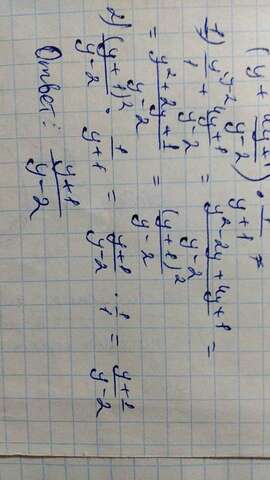 (y + (4y+1)/(y-2)) · 1/(y+1) =
1) y/1 ^(y-2) + (4y+1)/(y-2) = (y²-2y+4y+1)/(y-2) =
= (y²+2y+1)/(y-2) = (y+1)²/(y-2)
2) (y+1)²/(y-2) · 1/(y+1) = (y+1)/(y-2) · 1/1 = (y+1)/(y-2)
Ответ: (y+1)/(y-2)